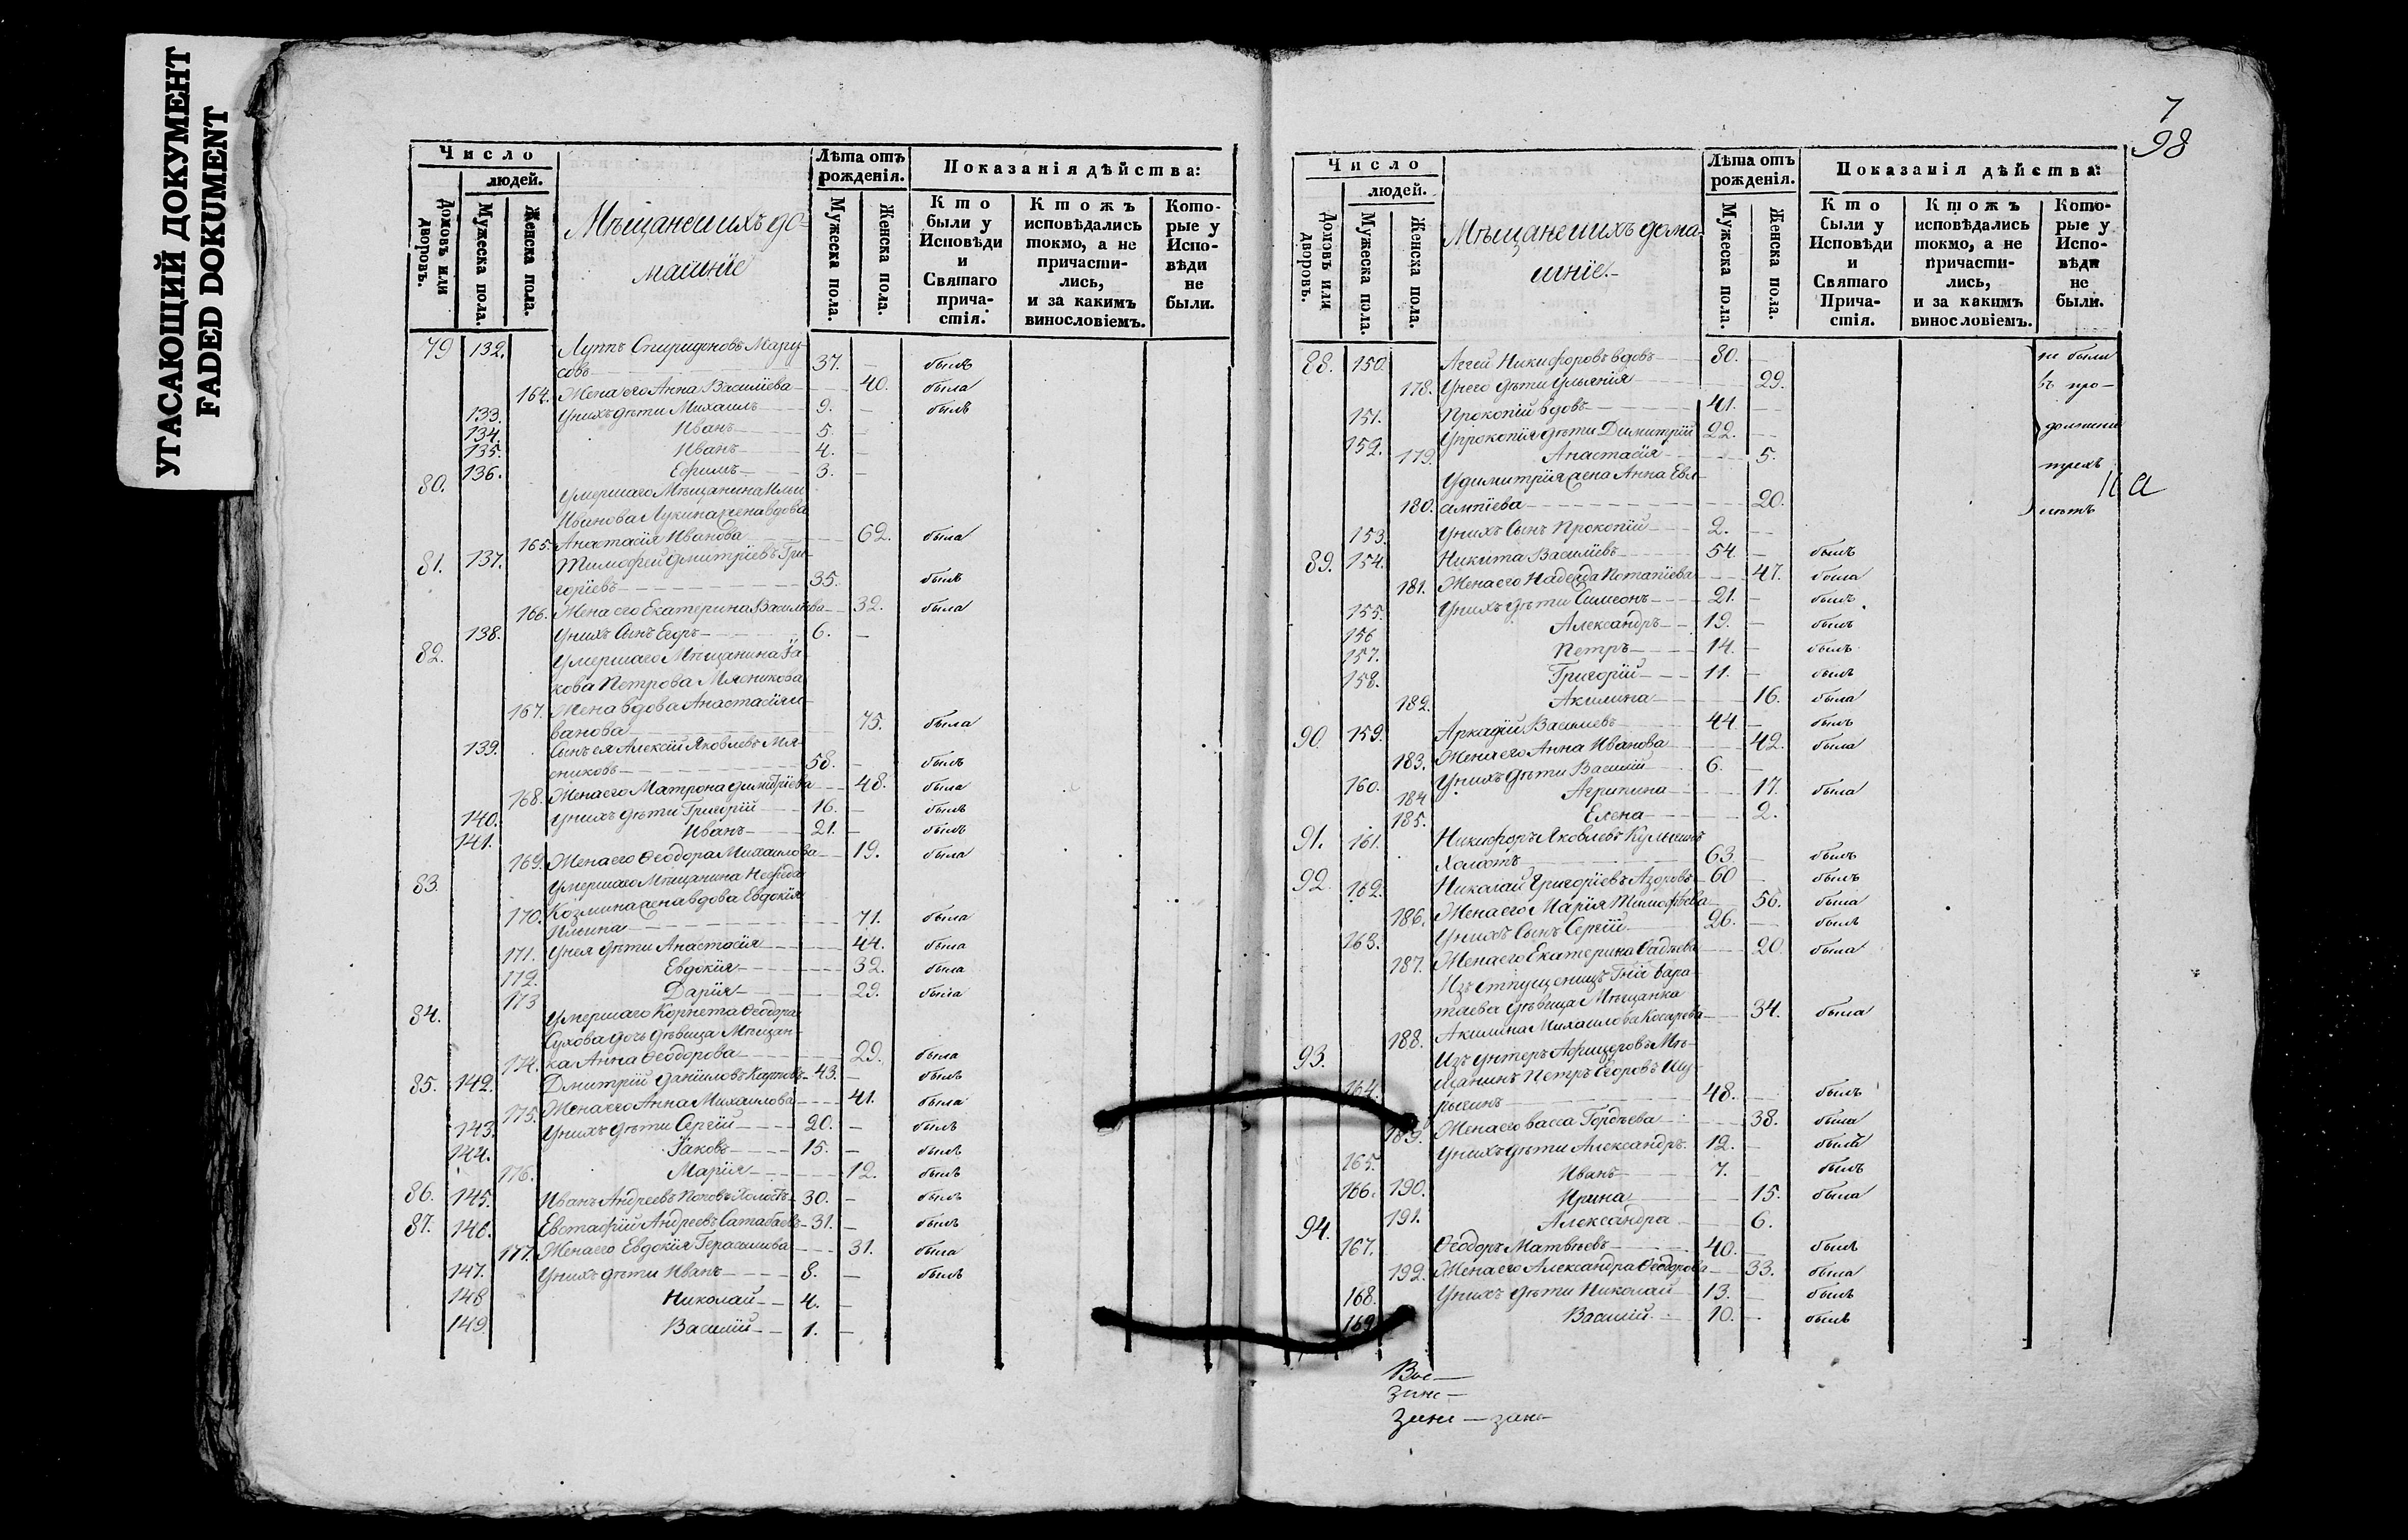 УГАСАЮЩИЙ ДОКУМЕНТ
FADED DOKUMENT
Число
людей.
Домовъ или дворовъ.
Мужеска пола.
Женска пола.
Мѣщане и ихъ до-
машнїе
Лѣта отъ рожденія.
Мужеска пола.
Женска пола.
Показанія дѣйства:
Кто были у Исповѣди и Святаго причастія.
Ктожъ исповѣдались токмо, а не причастились, и за какимъ винословіемъ.
Которые у Исповѣди не были.
79 132. Луппъ Спиридоновъ Мару-
совъ 37. — былъ
164. Жена его Анна Василїева 40. была
133. У нихъ дѣти Михаилъ 9. — былъ
134. Иванъ 5. —
135. Иванъ 4. —
136. Ефимъ 3. —
80. Умершаго Мѣщанина Ильи
Иванова Лукина жена вдова
165. Анастасїя Иванова 62. была
81. 137. Тимофей Дмитрїевъ Гри-
горїевъ 35. былъ
166. Жена его Екатерина Васильева 32. была
138. У нихъ сынъ Егоръ 6. —
82. Умершаго Мѣщанина Їа-
кова Петрова Мясникова
167. Жена вдова Анастасїя И-
ванова 75. была
139. Сынъ ея Алексїй Яковлевъ Мя-
сниковъ 58. — былъ
168. Жена его Матрона Димитрїева 48. была
140. У нихъ дѣти Григорїй 16. — былъ
141. Иванъ 21. — былъ
169. Жена его Ѳеодора Михаилова 19. была
83. Умершаго Мѣщанина Нефеда
Козмина жена вдова Евдокїя
170. Ильина 71. была
171. У нея дѣти Анастасїя 44. была
172. Евдокїя 32. была
173 Дарїя 29. была
84. Умершаго Корнета Ѳеодора
Сухова дочь дѣвица Мѣщан-
174. ка Анна Ѳеодорова 29. была
85. 142. Дмитрїй Данїиловъ Карповъ 43. — былъ
175. Жена его Анна Михаилова 41. была
143. У нихъ дѣти Сергїй 20. — былъ
144. Їаковъ 15. — былъ
176. Марїя 12. былъ
86. 145. Иванъ Андреевъ Поповъ Холостъ 30. — былъ
87. 146. Евстафїй Андреевъ Сатабаевъ 31. — былъ
177. Жена его Евдокїя Герасимова 31. была
147. У нихъ дѣти Иванъ 8. — былъ
148 Николай 4. —
149. Василїй 1. —
7
98
Число
людей.
Домовъ или дворовъ.
Мужеска пола.
Женска пола.
Мѣщане и ихъ дома-
шнїе.
Лѣта отъ рожденія.
Мужеска пола.
Женска пола.
Показанія дѣйства:
Кто были у Исповѣди и Святаго Причастія.
Ктожъ исповѣдались токмо, а не причастились, и за какимъ винословіемъ.
Которые у Исповѣди не были.
88. 150. Аггей Никифоровъ вдовъ 80. — не были
178. У него дѣти Ульянїя 29. въ про-
151. Прокопїй вдовъ 41. —
152. У Прокопїя дѣти Димитрїй 22. — должени
179. Анастасїя 5.
трехъ
У Димитрїя жена Анна Евл-
180. ампїева 20. лѣтъ
153. У нихъ Сынъ Прокопїй 2. —
89. 154. Никита Василїевъ 54. — былъ
181. Жена его Надежда Потапїева 47. была
155. У нихъ дѣти Симеонъ 21. — былъ
156 Александръ 19. — былъ
157. Петръ 14. — былъ
158. Григорїй 11. — былъ
182. Акилина 16. была
90. 159. Аркадїй Василїевъ 44 — былъ
183. Жена его Анна Иванова 42. была
160. У нихъ дѣти Василїй 6. —
184 Агрипина 17. была
185. Елена 2.
91. 161. Никифоръ Яковлевъ
Холостъ 63 — былъ
92. 162. Николай Григорїевъ Азоровъ 60 — былъ
186. Жена его Марїя Тимофѣева 56. была
163. У нихъ Сынъ Сергїй 26. — былъ
187. Жена его Екатерина Фадѣева 20 была
Изъ отпущеницъ Гжи Бара-
таева дѣвица Мѣщанка
188. Акилина Михаилова Косарева 34. была
93. Изъ унтеръ Афицеровъ Мѣ-
164. щанинъ Петръ Егоровъ Шу-
рыгинъ 48. — былъ
189. Жена его Васса Гордѣева 38. была
165. У нихъ дѣти Александръ 12. — былъ
166. Иванъ 7. — былъ
190. Ирина 15. была
191. Александра 6.
94. 167. Ѳеодоръ Матвѣевъ 40. — былъ
192. Жена его Александра Ѳеодорова 33. была
168. У нихъ дѣти Николай 13. — былъ
169. Василїй 10. — былъ